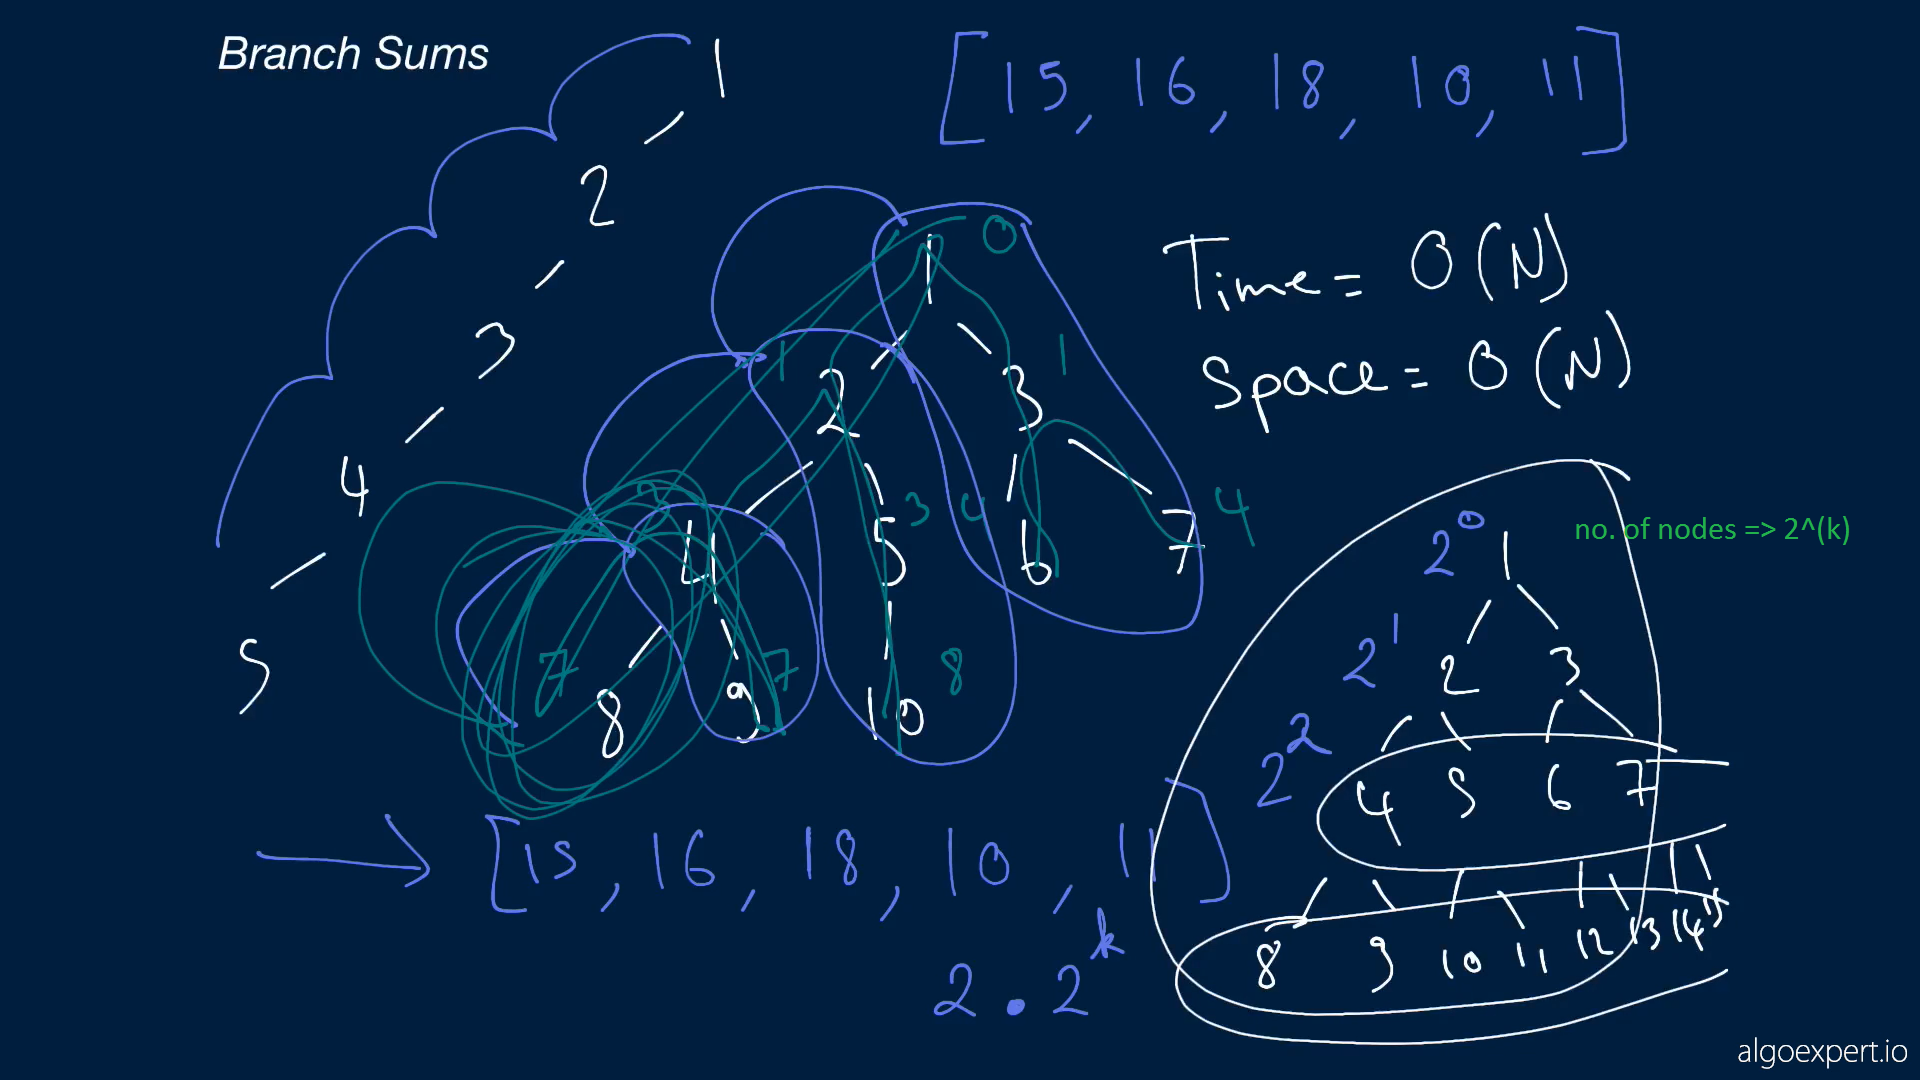 Branch Sums
[15, 16, 18, 10, 11]
1
2
3
4
5
0
1
1 2 3 1
2 4 5 3 4 6 7 4
7 8 9 7 10 8
Time = O(N)
Space = O(N)
no. of nodes => 2^(k)
2^0 1
2^1 2 3
2^2 4 5 6 7
8 9 10 11 12 13 14 15
[15, 16, 18, 10, 11]
2 . 2^k
algoexpert.io